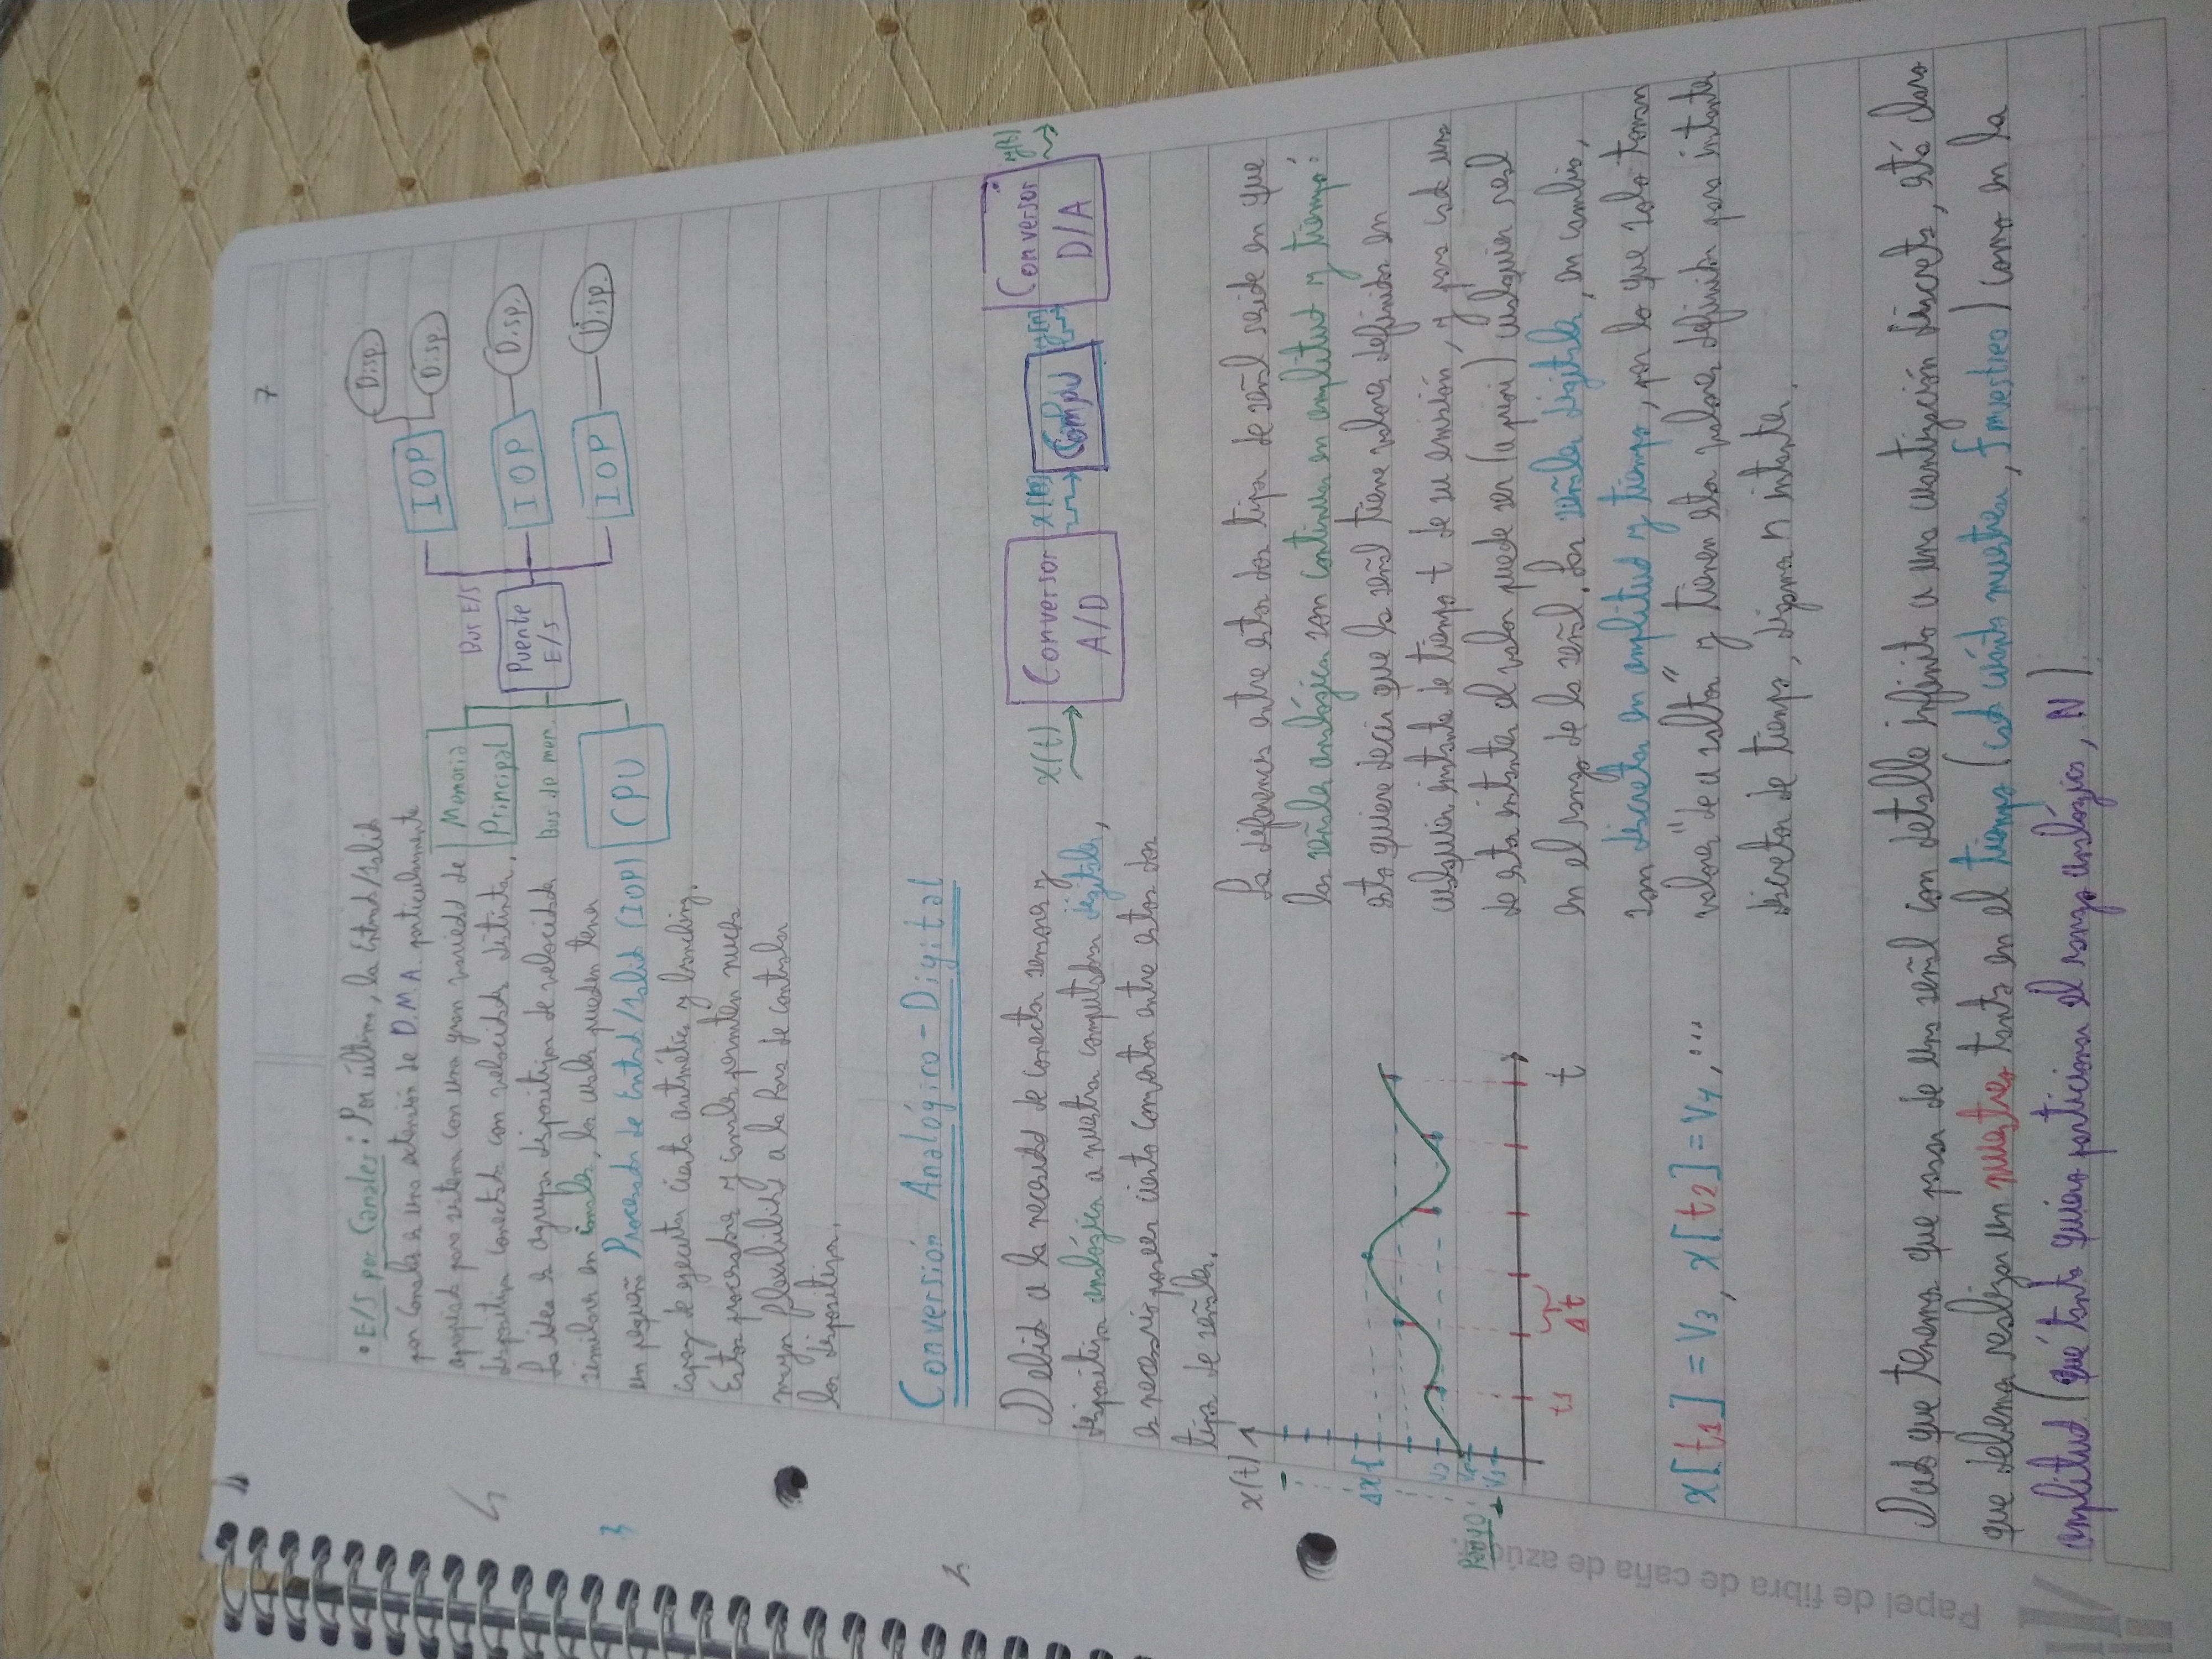 7
• E/S por Canales: Por último, la Entrada/Salida
por Canales es una extensión de D.M.A. particularmente
apropiada para sistemas con una gran variedad de
dispositivos conectados con velocidades distintas.
La idea es agrupar dispositivos de velocidades
similares en canales, los cuales pueden tener
un pequeño Procesador de Entrada/Salida (IOP)
capaz de ejecutar cierta aritmética y branching.
Estos procesadores y canales permiten mucha
mayor flexibilidad a la hora de controlar
los dispositivos.
Memoria
Principal
Bus de mem.
CPU
Puente
E/S
Bus E/S
IOP
Disp.
Disp.
IOP
Disp.
IOP
Disp.
Conversión Analógico-Digital
Debido a la necesidad de conectar sensores y
dispositivos analógicos a nuestras computadoras digitales,
es necesario poseer cierto conversor entre estos dos
tipos de señales.
x(t)
Conversor
A/D
Compu
y[n]
Conversor
D/A
y(t)
x(t)
Δx
V3
Rango
t1
Δt
t
x[t1] = V3, x[t2] = V4, ...
La diferencia entre estos dos tipos de señal reside en que
las señales analógicas son continuas en amplitud y tiempo:
esto quiere decir que la señal tiene valores definidos en
cualquier instante de tiempo t de su emisión, y para cada uno
de estos instantes el valor puede ser (a priori) cualquier real
en el rango de la señal. Las señales digitales, en cambio,
son discretas en amplitud y tiempo, por lo que solo toman
valores "de a saltos" y tienen estos valores definidos para instantes
discretos de tiempo, digamos n instantes.
Dado que tenemos que pasar de una señal con detalle infinito a una cuantización discreta, está claro
que debemos realizar un muestreo tanto en el tiempo (cada cuánto muestrear, fmuestreo) como en la
amplitud (qué tanto quiero particionar el rango analógico, N)
Papel de fibra de caña de azúcar.